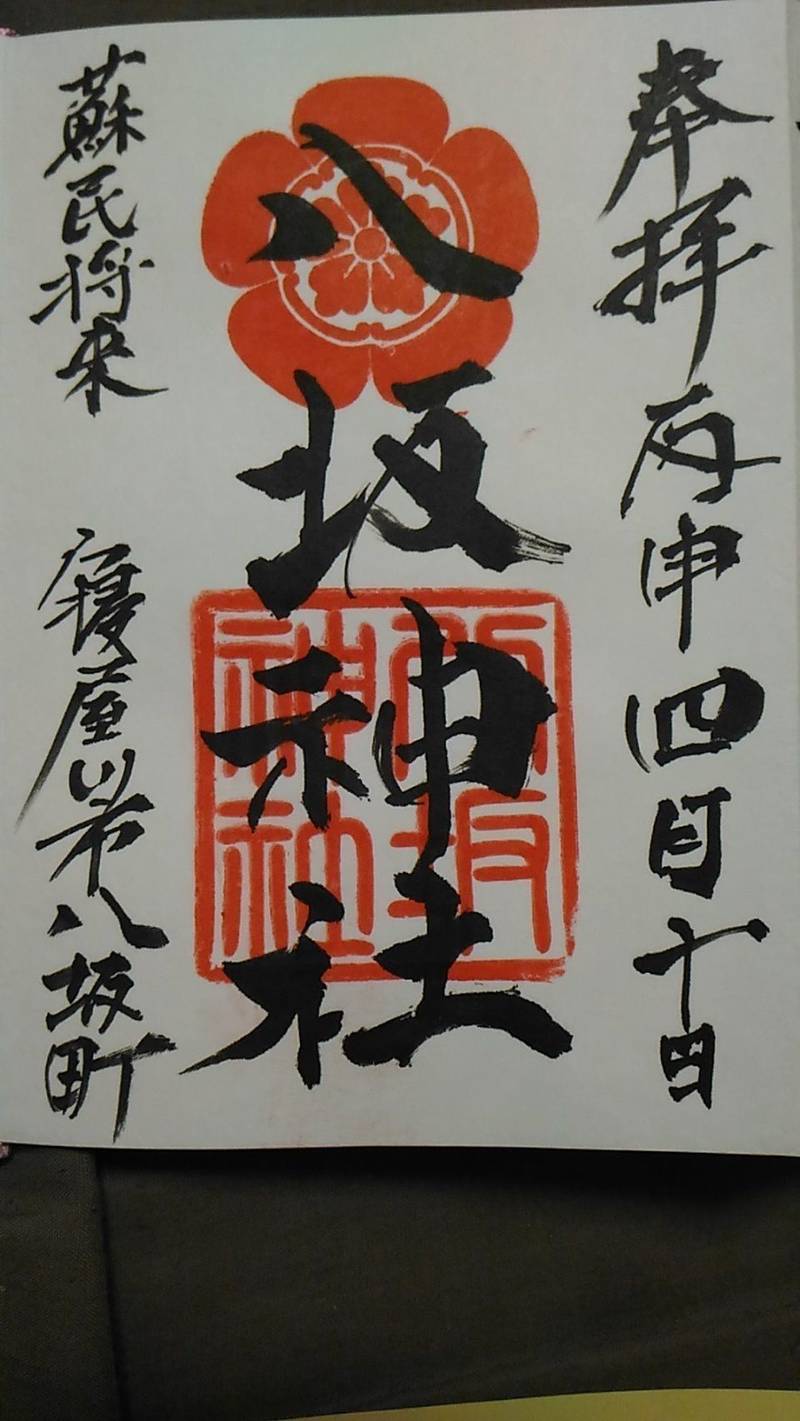 奉拝 丙申四月十四日
八坂神社
八坂神社
蘇民将来 寝屋川市八坂町